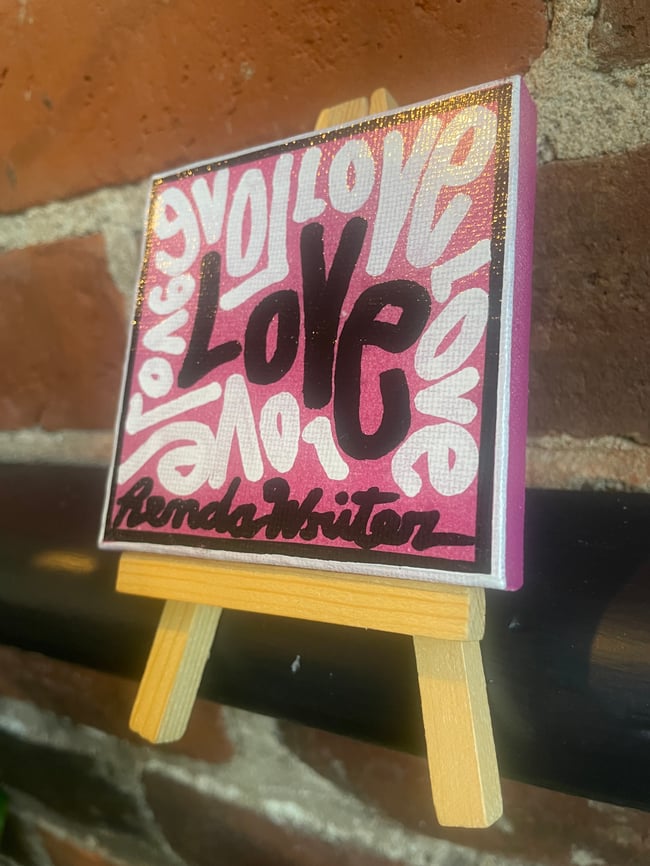 Love
Love
Love
Love
Love
Love
Renda Writer